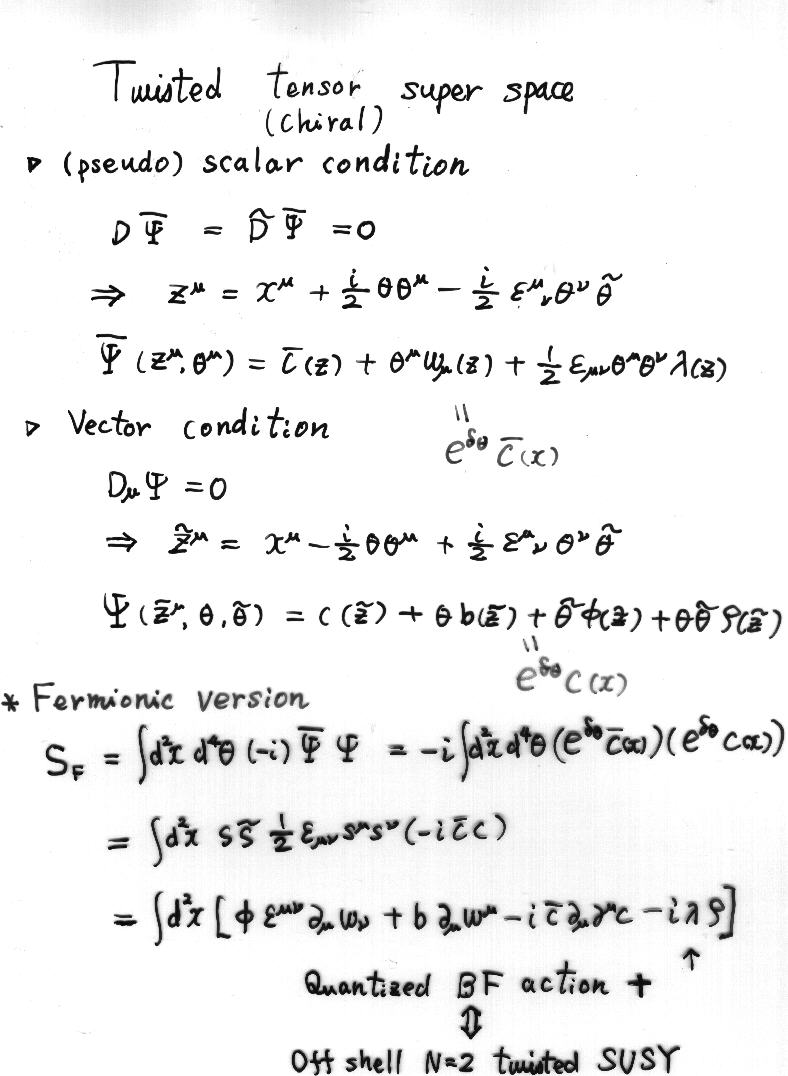 Twisted tensor super space
(chiral)
▷ (pseudo) scalar condition
D Ψ̅ = D̃ Ψ̅ = 0
⇒ z^μ = x^μ + i/2 θθ^μ − i/2 ε^μ_ν θ^ν θ̃
Ψ̅ (z^μ, θ^μ) = c̅(z) + θ^μ ω_μ(z) + 1/2 ε_μν θ^μ θ^ν λ(z)
▷ Vector condition
= e^{δ_θ} c̅(x)
D_μ Ψ = 0
⇒ z̃^μ = x^μ − i/2 θθ^μ + i/2 ε^μ_ν θ^ν θ̃
Ψ (z̃^μ, θ, θ̃) = c(z̃) + θ b(z̃) + θ̃ φ(z̃) + θθ̃ ρ(z̃)
= e^{δ_θ} c(x)
* Fermionic version
S_F = ∫d²x d⁴θ (-i) Ψ̅ Ψ = -i∫d²x d⁴θ (e^{δ_θ} c̅(x))(e^{δ_θ} c(x))
= ∫d²x s s̃ 1/2 ε_μν s^μ s^ν (-i c̅ c)
= ∫d²x [φ ε^μν ∂_μ ω_ν + b ∂_μ ω^μ − i c̅ ∂_μ ∂^μ c − i λ ρ]
↑
Quantized BF action +
⇕
Off shell N=2 twisted SUSY